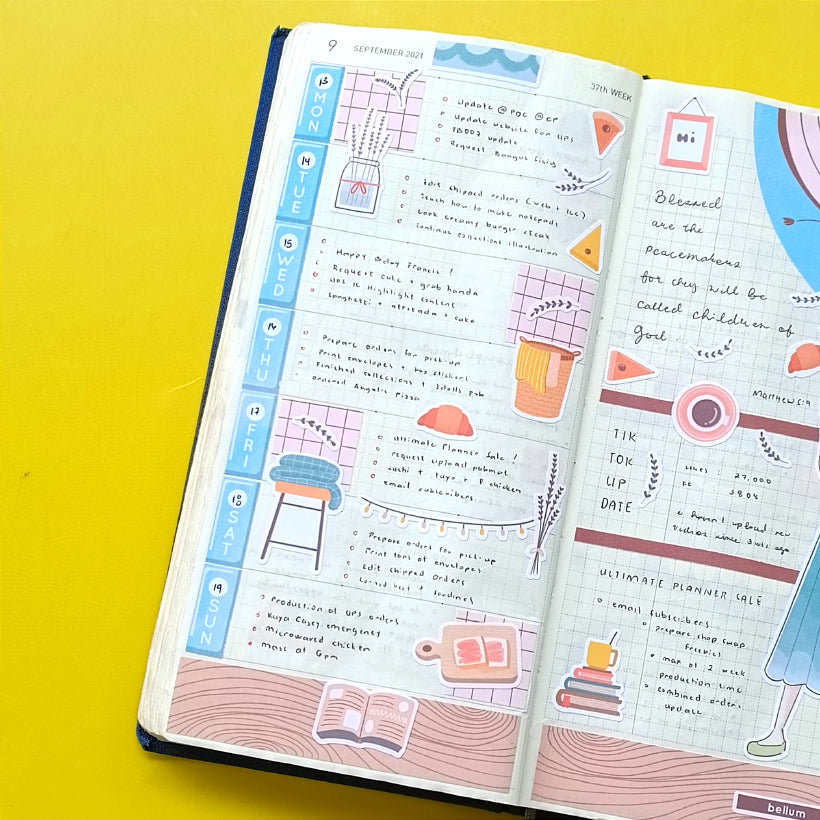 9 SEPTEMBER 2021
37th WEEK
13 MON
Update @pgc @cp
Update website for UPS
PB007 update
Request Bangus
14 TUE
Edit shipped orders (web + IG)
Teach how to make notepads
Cook creamy burger steak
Continue collections illustration
15 WED
Happy Bday Francis !
Request cake + grab handa
UPS IG Highlight content
Spaghetti + afritada + cake
16 THU
Prepare orders for pick-up
Print envelopes + box stickers
Finished collections + 3dolls pub
Ordered Angel's Pizza
17 FRI
Ultimate Planner Sale !
request upload pubmat
Sushi + tuyo + P chicken
email subscribers
18 SAT
Prepare orders for pick-up
Print tons of envelopes
Edit shipped orders
Corned beef + sardines
19 SUN
Production of UPS orders
Kuya Casey emergency
Microwaved chicken
Mass at 6pm
Hi
Blessed
are the
Peacemakers
for they will be
called children of
God.
Matthew 5:9
TIK
TOK
UP
DATE
Likes : 27,000
: 3808
I haven't upload new
videos since 3 wks ago
ULTIMATE PLANNER SALE
email subscribers
Prepare shop swap
Freebies
max of 2 week
production time
combined orders
update
bellum